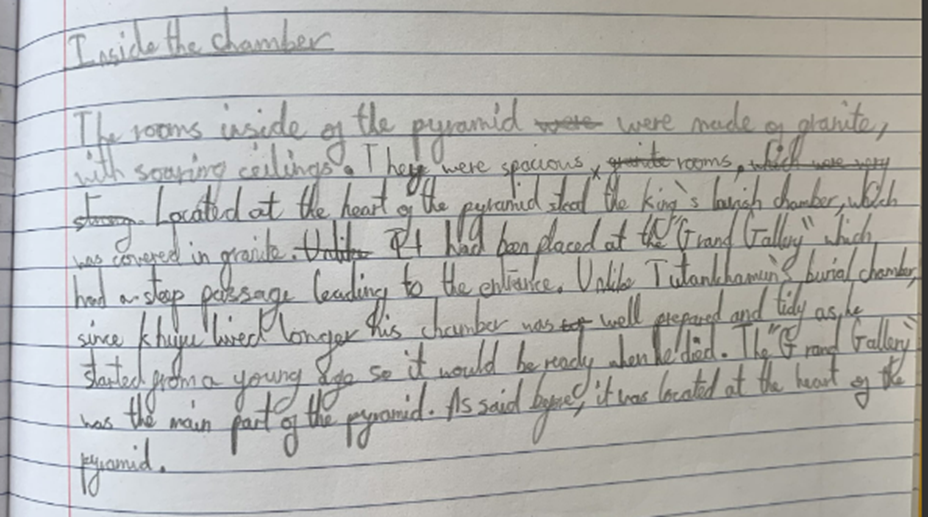 Inside the chamber
The rooms inside of the pyramid were were made of granite,
with soaring ceilings. They were spacious, granite rooms, which were very
strong. Located at the heart of the pyramid stood the king's lavish chamber, which
was covered in granite. Unlike It had been placed at the "Grand Gallery" which
had a steep passage leading to the entrance. Unlike Tutankhamun's burial chamber,
since Khufu lived longer his chamber was well prepared and tidy as he
started from a young age so it would be ready when he died. The "Grand Gallery"
was the main part of the pyramid. As said before, it was located at the heart of the
pyramid.